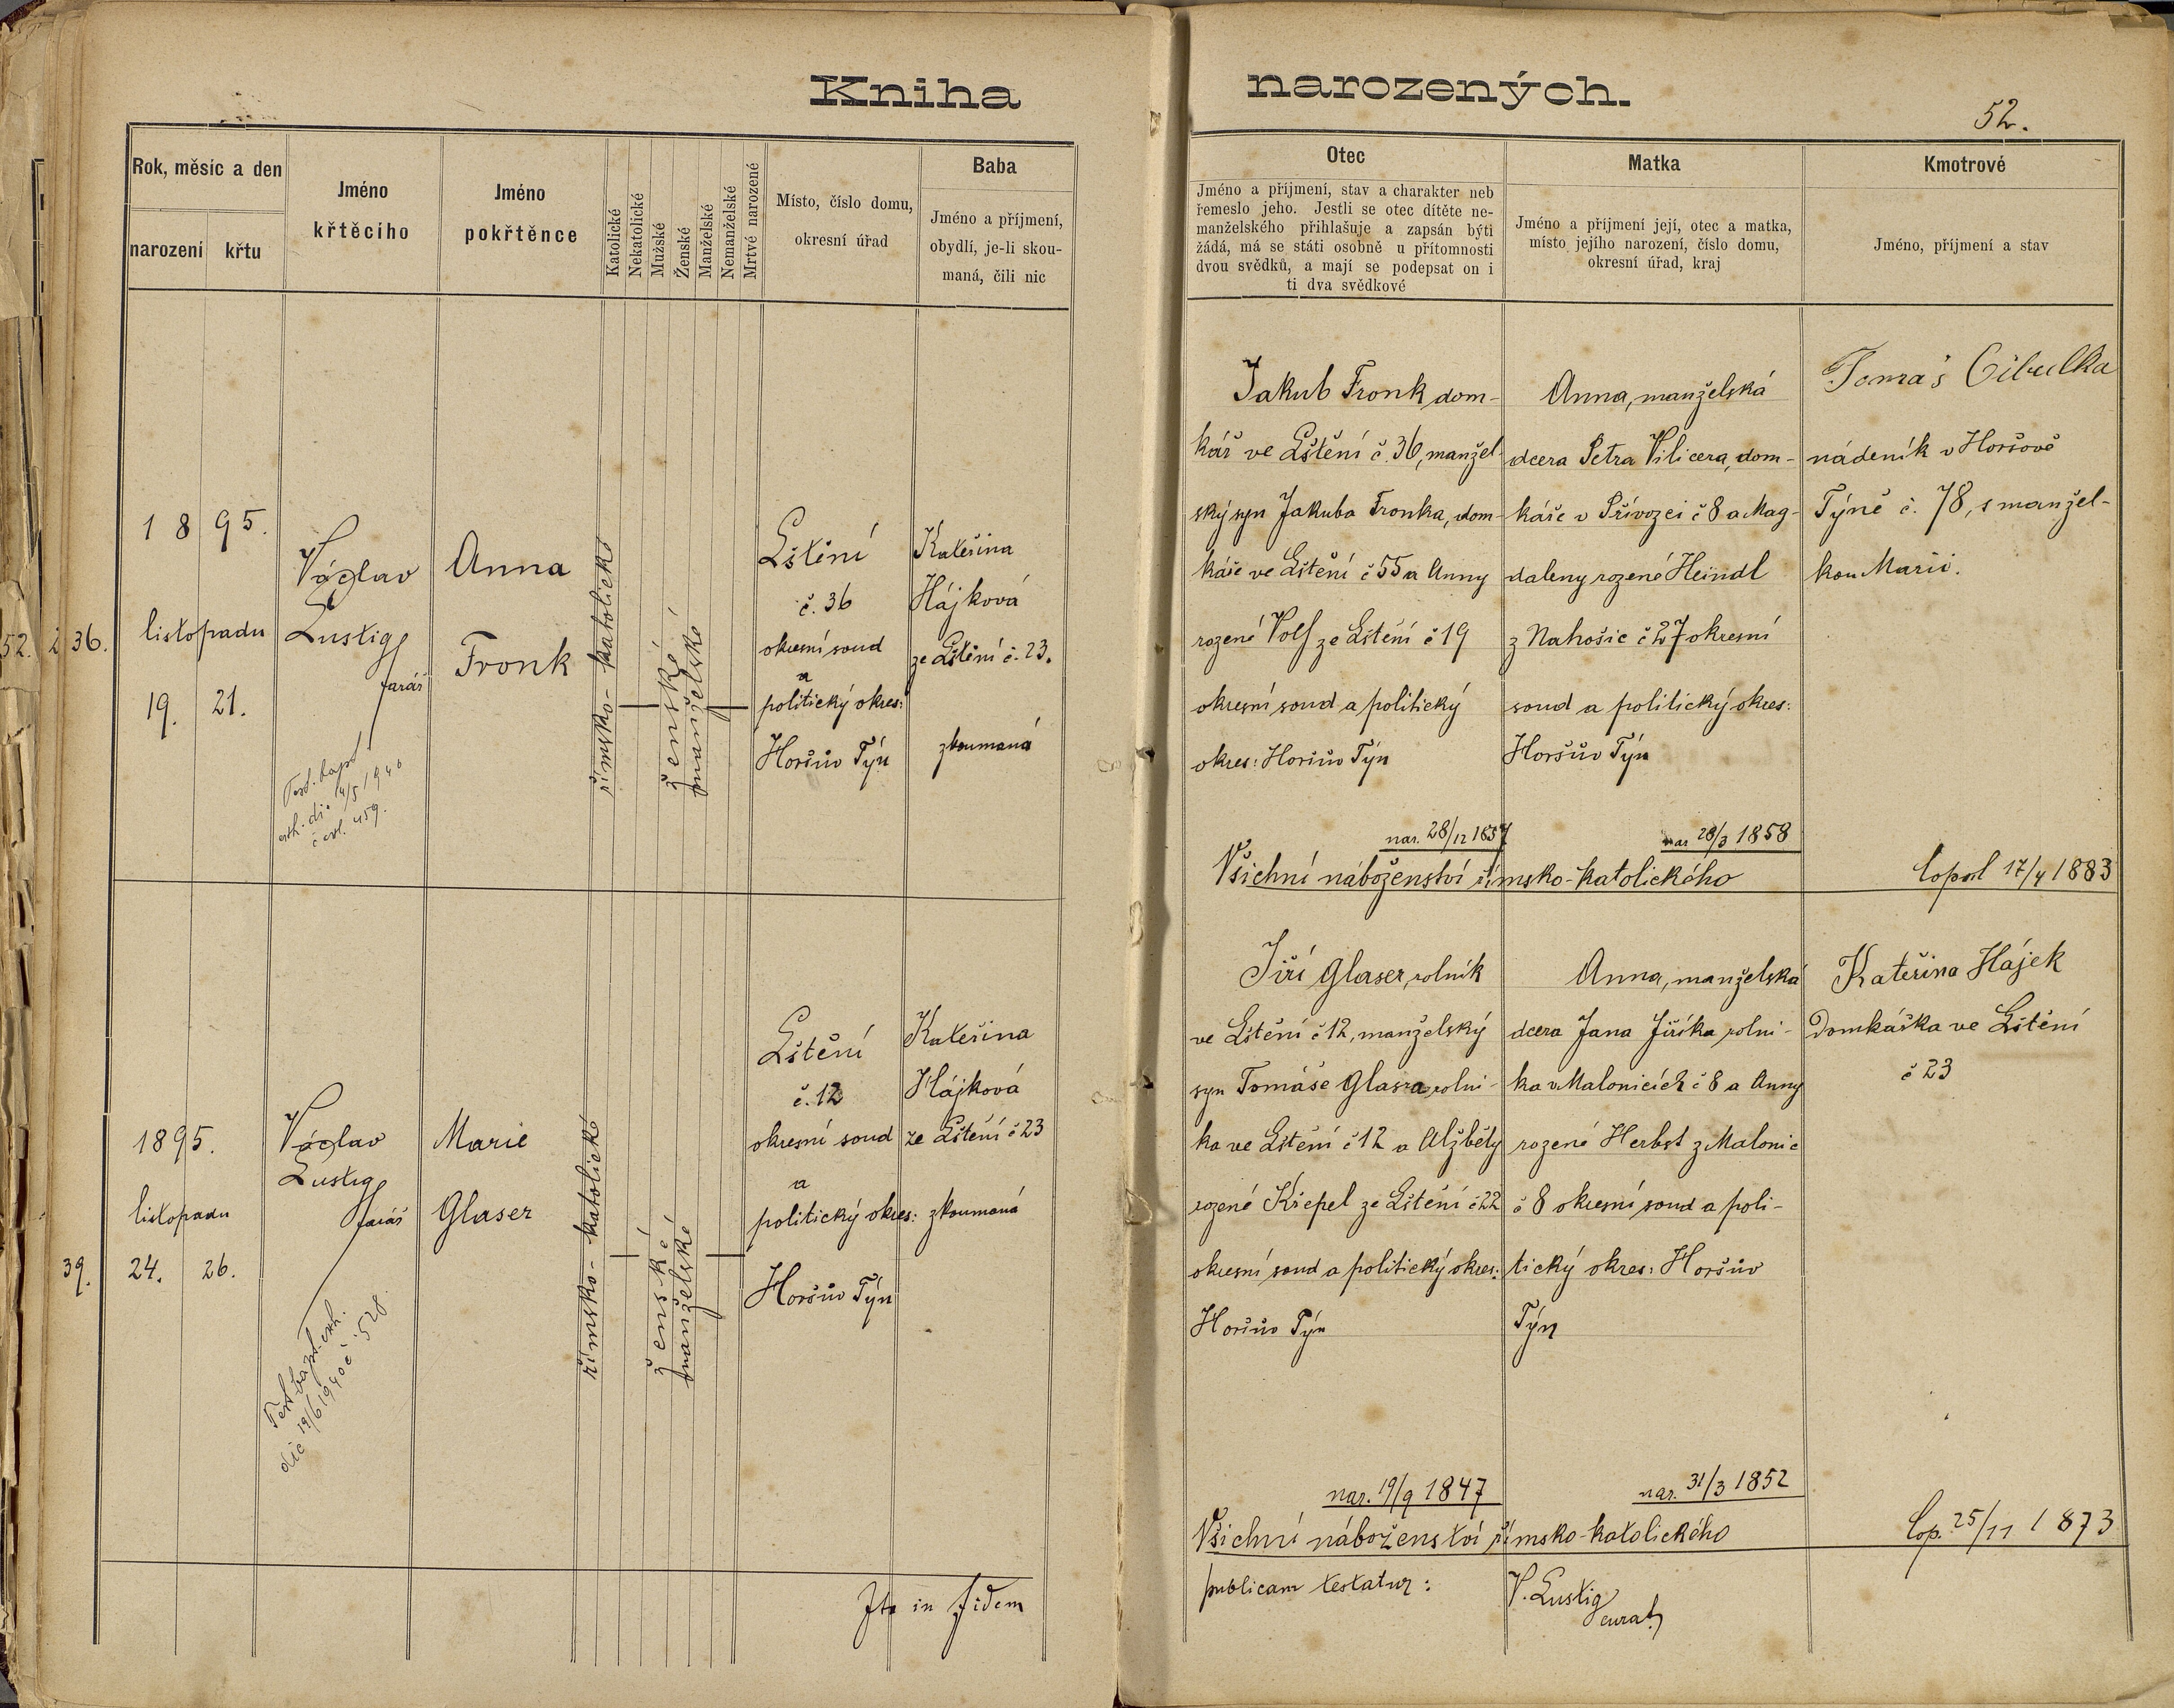 Kniha narozených.
52.
Rok, měsíc a den
narození
křtu
Jméno
křtěcího
Jméno
pokřtěnce
Katolické
Nekatolické
Mužské
Ženské
Manželské
Nemanželské
Mrtvé narozené
Místo, číslo domu,
okresní úřad
Baba
Jméno a příjmení,
obydlí, je-li skou-
maná, čili nic
Otec
Jméno a příjmení, stav a charakter neb
řemeslo jeho. Jestli se otec dítěte ne-
manželského přihlašuje a zapsán býti
žádá, má se státi osobně u přítomnosti
dvou svědků, a mají se podepsat on i
ti dva svědkové
Matka
Jméno a příjmení její, otec a matka,
místo jejího narození, číslo domu,
okresní úřad, kraj
Kmotrové
Jméno, příjmení a stav
36.
1895.
listopadu
19. 21.
Václav
Lustig
farář
Test. bapt.
exh. di 14/5 1940
č exh. 459.
Anna
Fronk
římsko-katolické
ženské
manželské
Lštění
č. 36
okresní soud
a
politický okres:
Horšův Týn
Kateřina
Hájková
ze Lštění č. 23.
zkoumaná
Jakub Fronk dom-
kář ve Lštění č. 36, manžel-
ský syn Jakuba Fronka, dom-
káře ve Lštění č 55 a Anny
rozené Volf ze Lštění č 19
okresní soud a politický
okres: Horšův Týn
nar. 28/12 1857
Anna, manželská
dcera Petra Vilicera, dom-
káře v Přívozci č 8 a Mag-
daleny rozené Heindl
z Nahošic č 27 okresní
soud a politický okres:
Horšův Týn
nar 28/3 1858
Všichní náboženství římsko-katolického
Tomáš Cibulka
nádeník v Horšově
Týně č. 78, s manžel-
kou Marií.
Copul 17/4 1883
39.
1895.
listopadu
24. 26.
Václav
Lustig
farář
Test. bapt. exh.
die 19/6 1940 č 528.
Marie
Glaser
římsko-katolické
ženské
manželské
Lštění
č. 12
okresní soud
a
politický okres:
Horšův Týn
Kateřina
Hájková
ze Lštění č 23
zkoumaná
Jiří Glaser, rolník
ve Lštění č 12, manželský
syn Tomáše Glasra, rolní-
ka ve Lštění č 12 a Alžběty
rozené Křepel ze Lštění č 22
okresní soud a politický okres:
Horšův Týn
nar. 19/9 1847
Anna, manželská
dcera Jana Jiříka, rolní-
ka v Malonicích č 8 a Anny
rozené Herbst z Malonic
č 8 okresní soud a poli-
tický okres: Horšův
Týn
nar. 31/3 1852
Všichní náboženství římsko-katolického
Kateřina Hájek
Domkářka ve Lštění
č 23
Cop. 25/11 1873
Ita in fidem publicam testatur:
V. Lustig
curat.